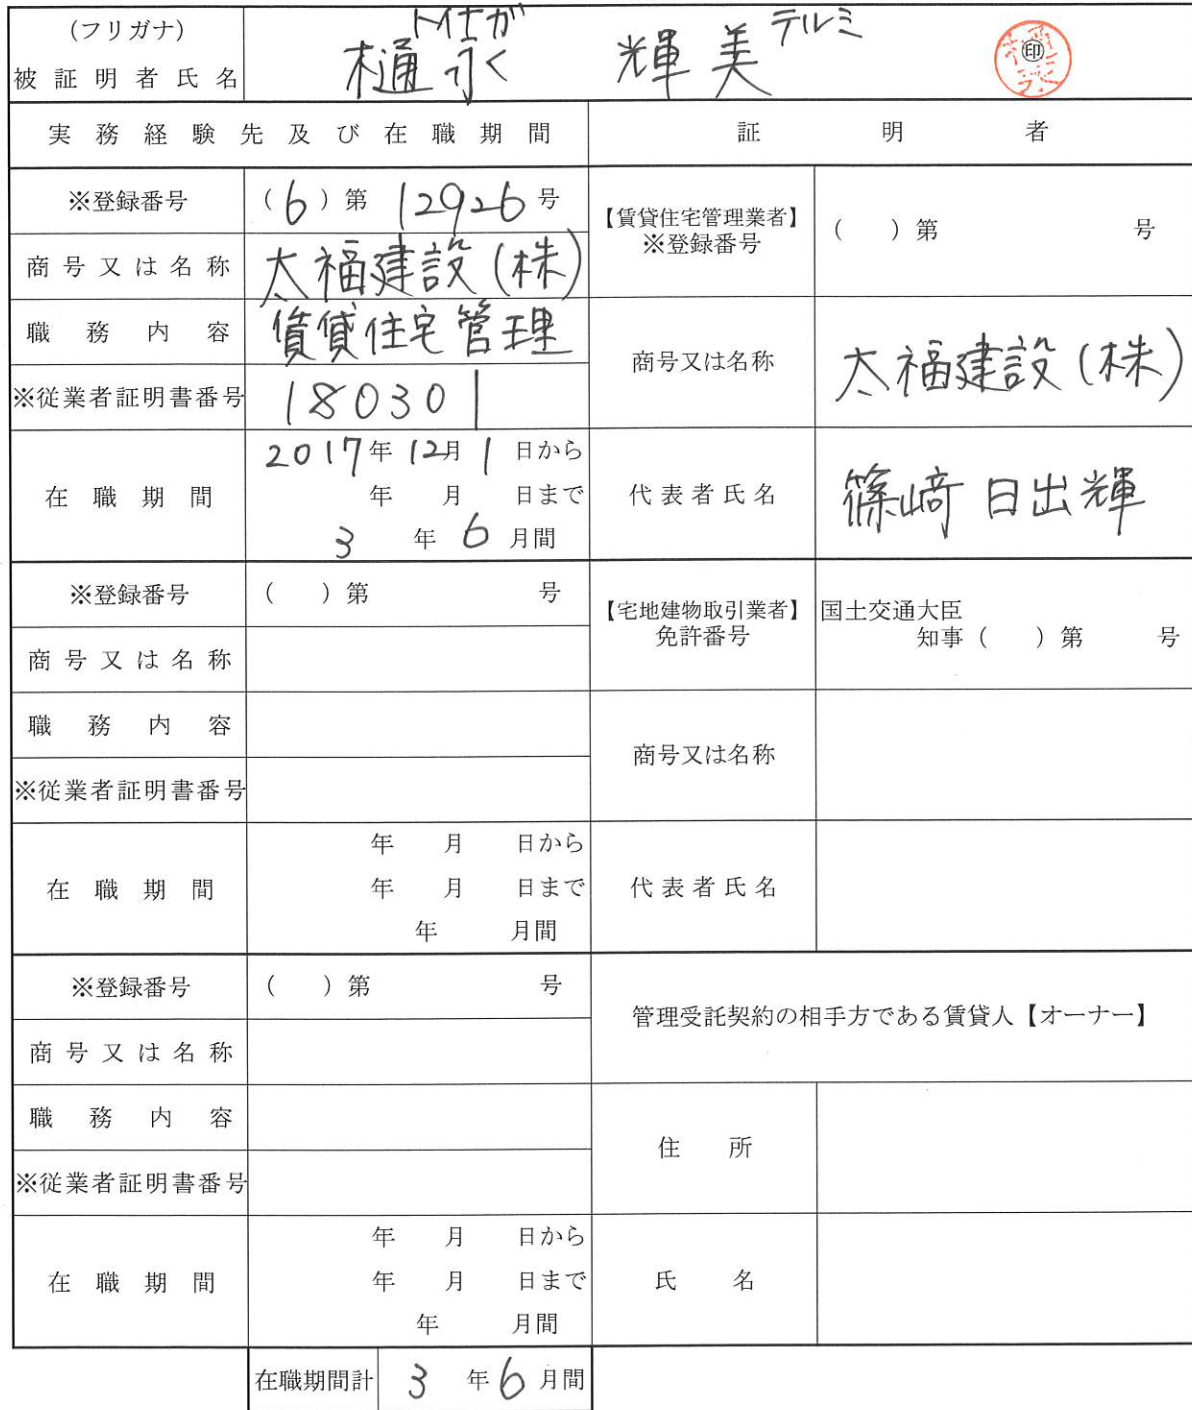 (フリガナ) トイナガ テルミ
被証明者氏名 樋永 輝美 印
実務経験先及び在職期間 証明者
※登録番号 (6)第 12926号
【賃貸住宅管理業者】
※登録番号 ( )第 号
商号又は名称 太福建設(株)
職務内容 賃貸住宅管理
商号又は名称 太福建設(株)
※従業者証明書番号 180301
在職期間 2017年12月1日から
年 月 日まで
3年6月間
代表者氏名 篠﨑 日出輝
※登録番号 ( )第 号
【宅地建物取引業者】
免許番号
国土交通大臣
知事( )第 号
商号又は名称
職務内容
商号又は名称
※従業者証明書番号
在職期間 年 月 日から
年 月 日まで
年 月間
代表者氏名
※登録番号 ( )第 号
管理受託契約の相手方である賃貸人【オーナー】
商号又は名称
職務内容
住所
※従業者証明書番号
在職期間 年 月 日から
年 月 日まで
年 月間
氏名
在職期間計 3年6月間